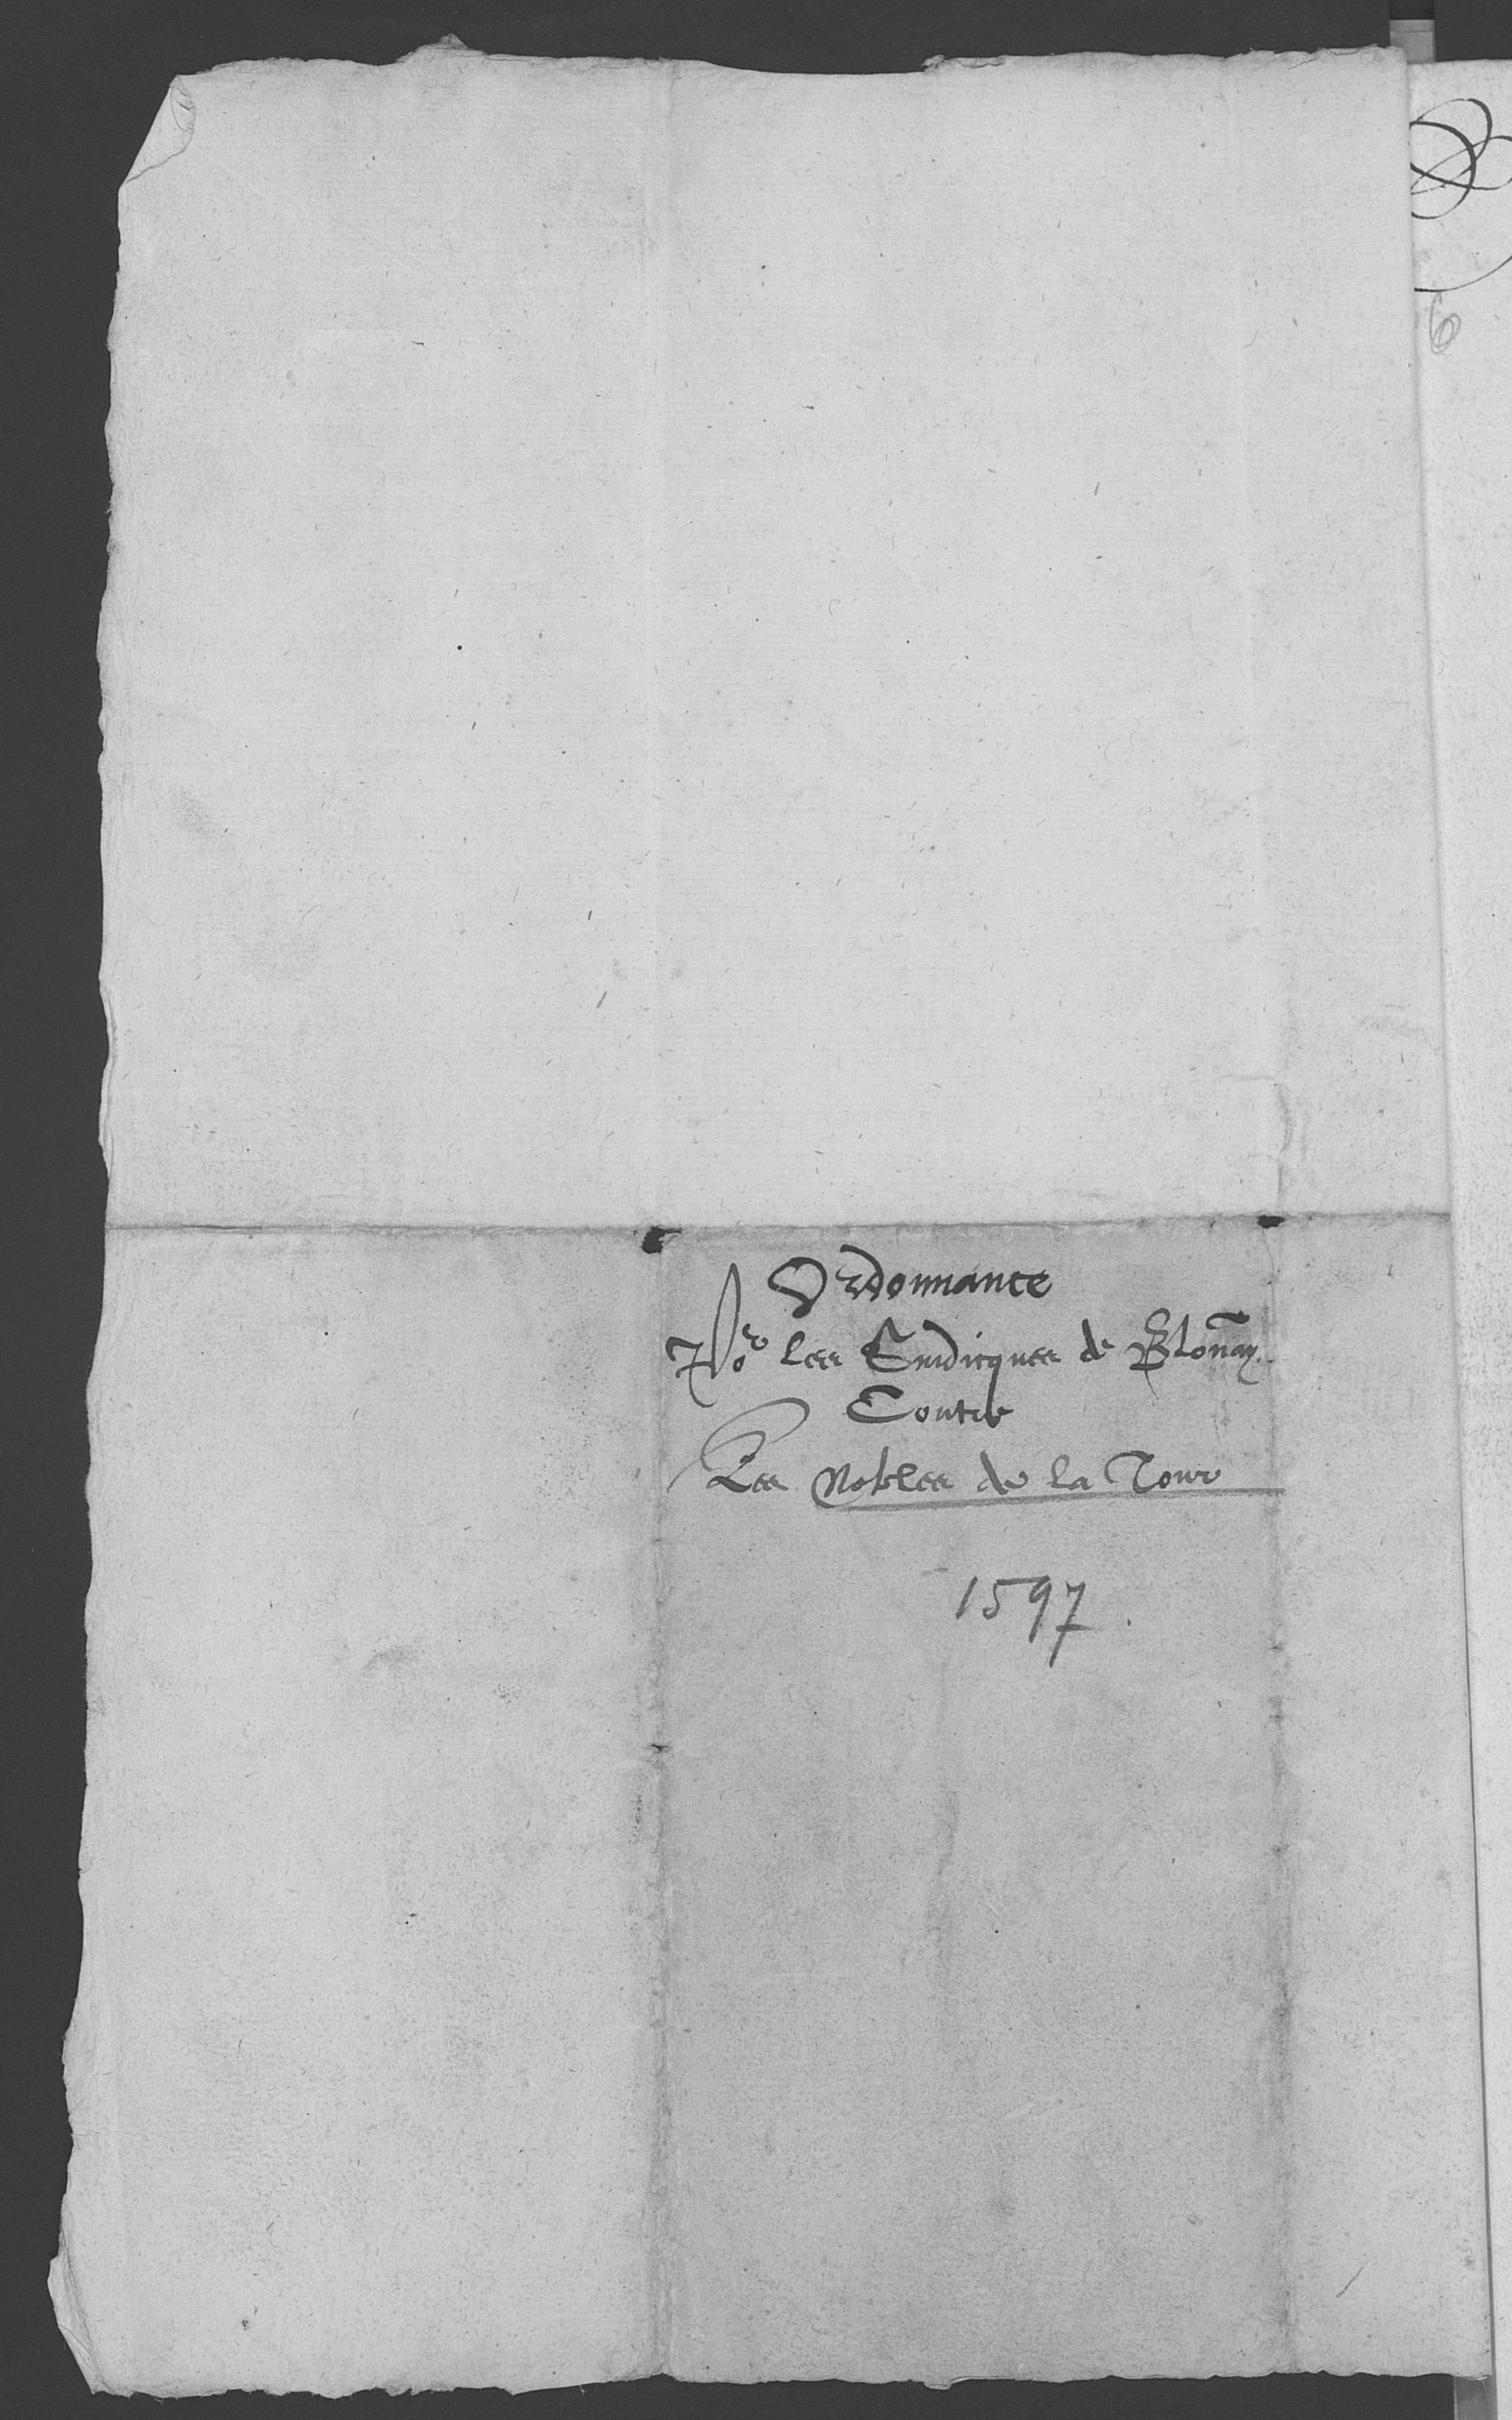 Ordonnance
Por les Sindicques de Blonay
Contre
Les Nobles de la Tour
1597.
6